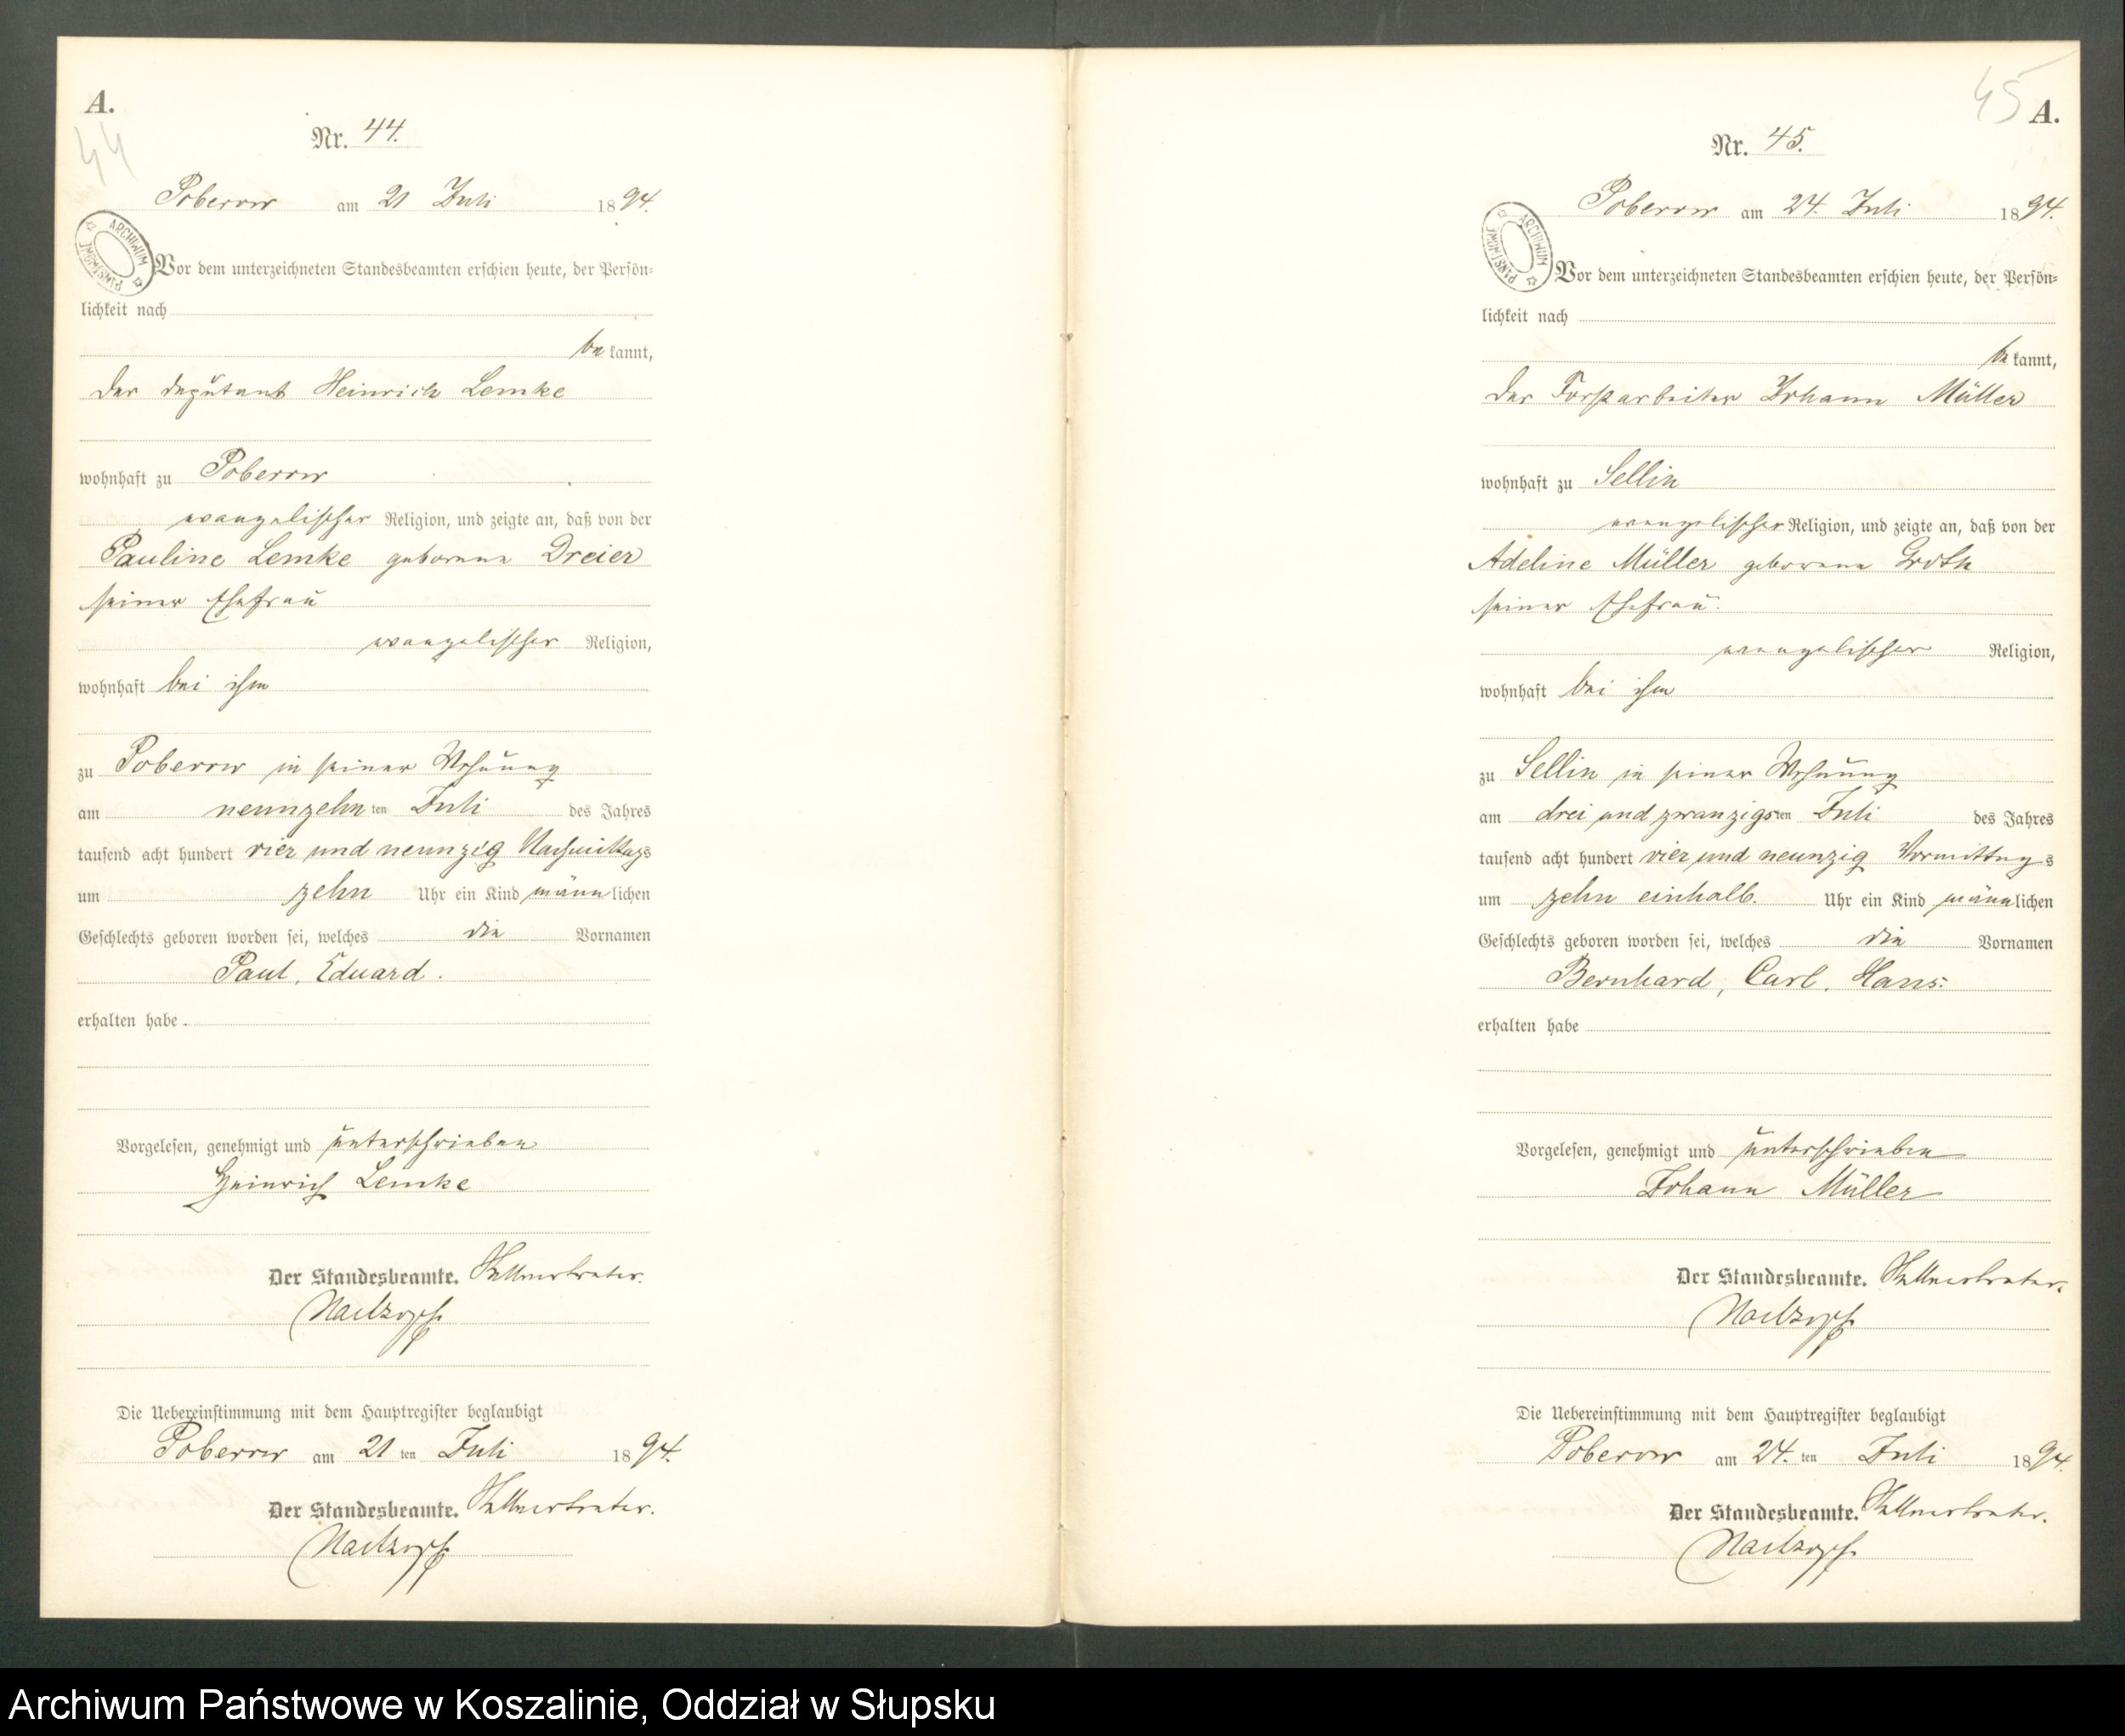 A.
44
Nr. 44.
Poberow am 21 Juli 1894.
ARCHIWUM PAŃSTWOWE
Vor dem unterzeichneten Standesbeamten erschien heute, der Persön-
lichkeit nach
be kannt,
der Deputant Heinrich Lemke
wohnhaft zu Poberow
evangelischer Religion, und zeigte an, daß von der
Pauline Lemke geborene Dreier
seiner Ehefrau
evangelischer Religion,
wohnhaft bei ihm
zu Poberow in seiner Wohnung
am neunzehn ten Juli des Jahres
tausend acht hundert vier und neunzig Nachmittags
um zehn Uhr ein Kind männlichen
Geschlechts geboren worden sei, welches die Vornamen
Paul, Eduard.
erhalten habe.
Vorgelesen, genehmigt und unterschrieben
Heinrich Lemke
Der Standesbeamte. Stellvertreter.
Die Uebereinstimmung mit dem Hauptregister beglaubigt
Poberow am 21 ten Juli 1894.
Der Standesbeamte. Stellvertreter.
45
A.
Nr. 45.
Poberow am 24. Juli 1894.
ARCHIWUM PAŃSTWOWE
Vor dem unterzeichneten Standesbeamten erschien heute, der Persön-
lichkeit nach
be kannt,
der Forstarbeiter Johann Müller
wohnhaft zu Sellin
evangelischer Religion, und zeigte an, daß von der
Adeline Müller geborene Groth
seiner Ehefrau.
evangelischer Religion,
wohnhaft bei ihm
zu Sellin in seiner Wohnung
am drei und zwanzigsten Juli des Jahres
tausend acht hundert vier und neunzig Vormittags
um zehn einhalb. Uhr ein Kind männlichen
Geschlechts geboren worden sei, welches die Vornamen
Bernhard, Carl, Hans.
erhalten habe
Vorgelesen, genehmigt und unterschrieben
Johann Müller
Der Standesbeamte. Stellvertreter.
Die Uebereinstimmung mit dem Hauptregister beglaubigt
Poberow am 24. ten Juli 1894.
Der Standesbeamte. Stellvertreter.
Archiwum Państwowe w Koszalinie, Oddział w Słupsku